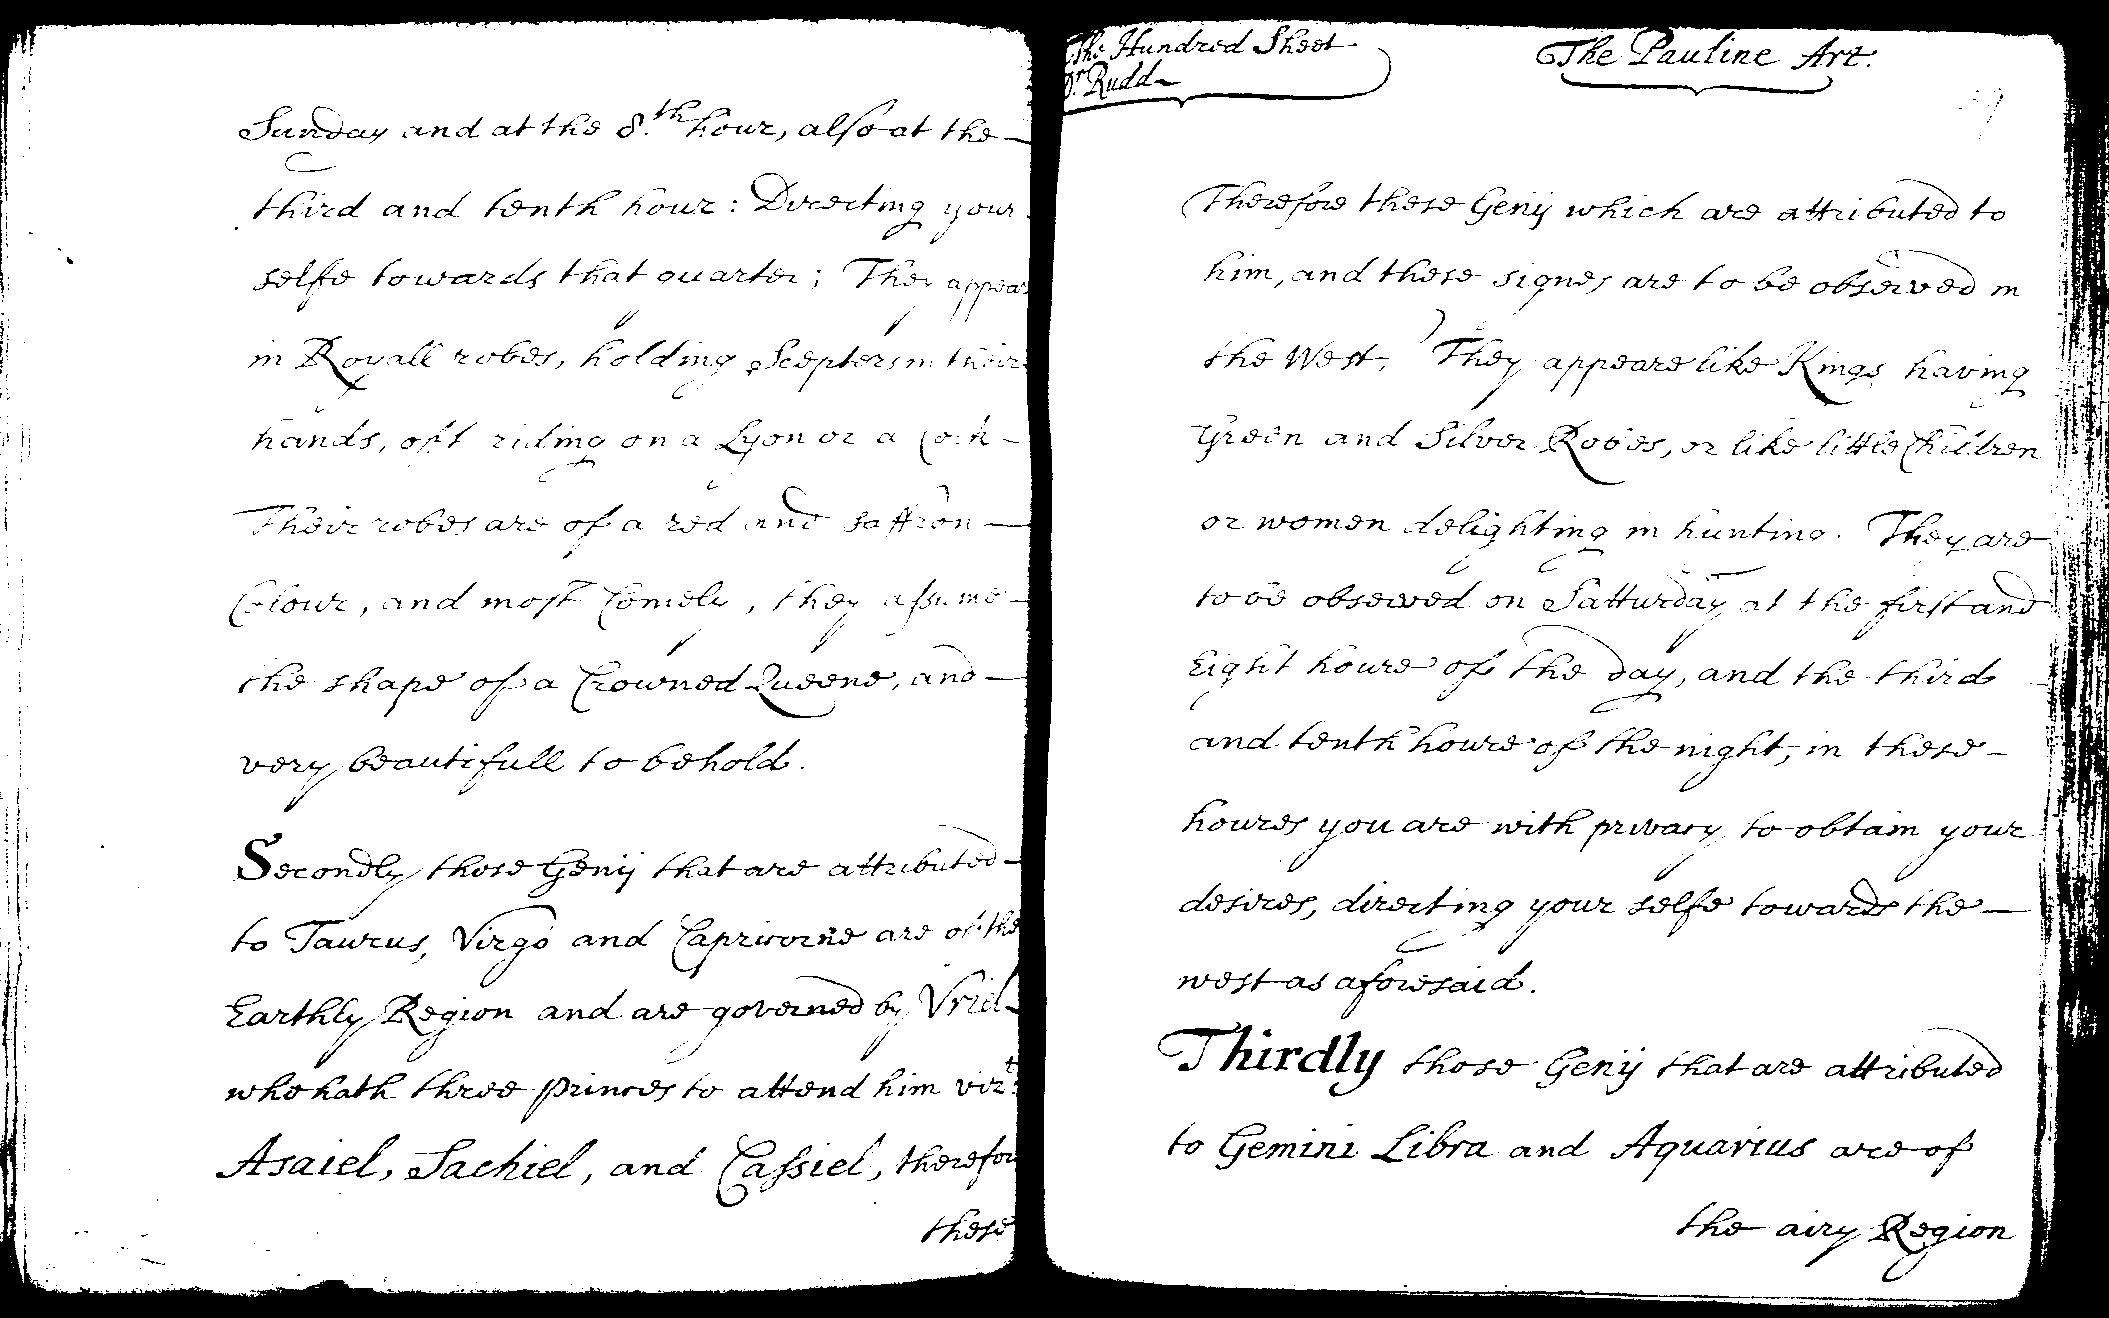 Sunday and at the 8.th hour, also at the
third and tenth hour: Directing your
selfe towards that quarter; They appear
in Royall robes, holding Scepters in their
hands, oft riding on a Lyon or a Cock
Their robes are of a red and saffron
Colour, and most Comely, they assume
the shape of a Crowned Queene, and
very beautifull to behold.
Secondly those Genij that are attributed
to Taurus, Virgo and Capricorne are of the
Earthly Region and are governed by Vriel
who hath three princes to attend him vizt:
Asaiel, Sachiel, and Cassiel, therefore
these
The Hundred Sheet
Dr Rudd
The Pauline Art.
Therefore these Genij which are attributed to
him, and these signes are to be observed in
the West. They appeare like Kings having
Green and Silver Robes, or like little Children
or women delighting in hunting. They are
to be observed on Satturday at the first and
Eight houre of the day, and the third
and tenth houre of the night, in these
houres you are with privacy to obtain your
desires, directing your selfe towards the
west as aforesaid.
Thirdly those Genij that are attributed
to Gemini Libra and Aquarius are of
the airy Region